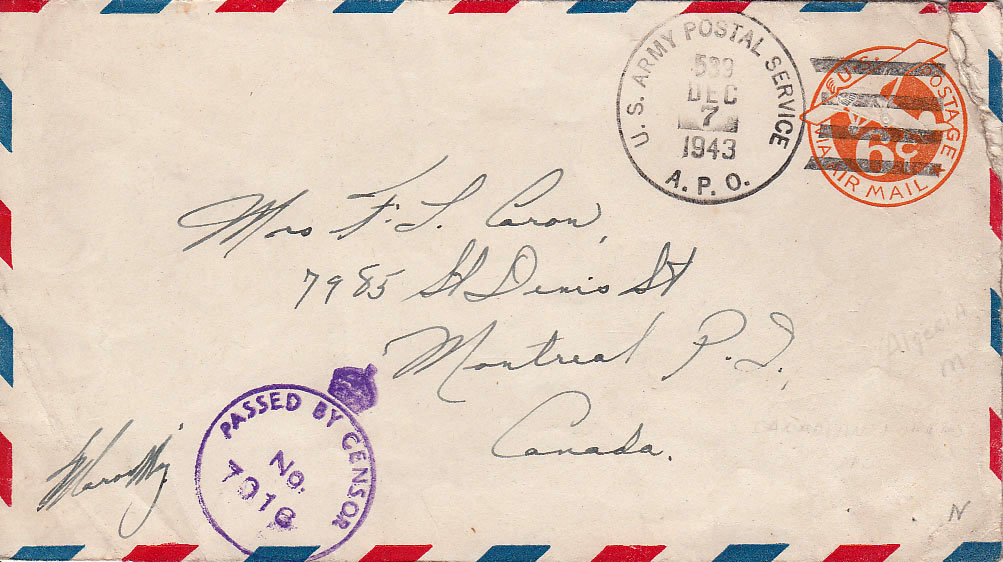 U. S. ARMY POSTAL SERVICE
DEC
7
1943
A. P. O.
U.S. POSTAGE
6¢
VIA AIR MAIL
Mrs F. L. Caron,
7985 St Denis St
Montreal P. Q.
Canada.
Algeria
M
PASSED BY CENSOR
No.
7016
N